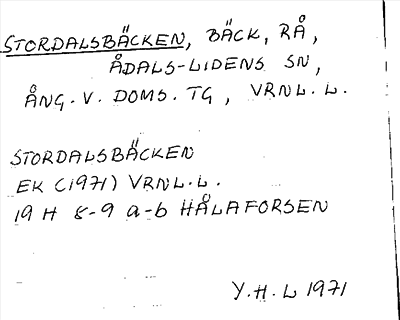 STORDALSBÄCKEN, BÄCK, RÅ,
ÅDALS-LIDENS SN,
ÅNG. V. DOMS. TG, VRNL. L.
STORDALSBÄCKEN
EK (1971) VRNL. L.
19 H 8-9 a-b HÅLAFORSEN
Y. H. L 1971